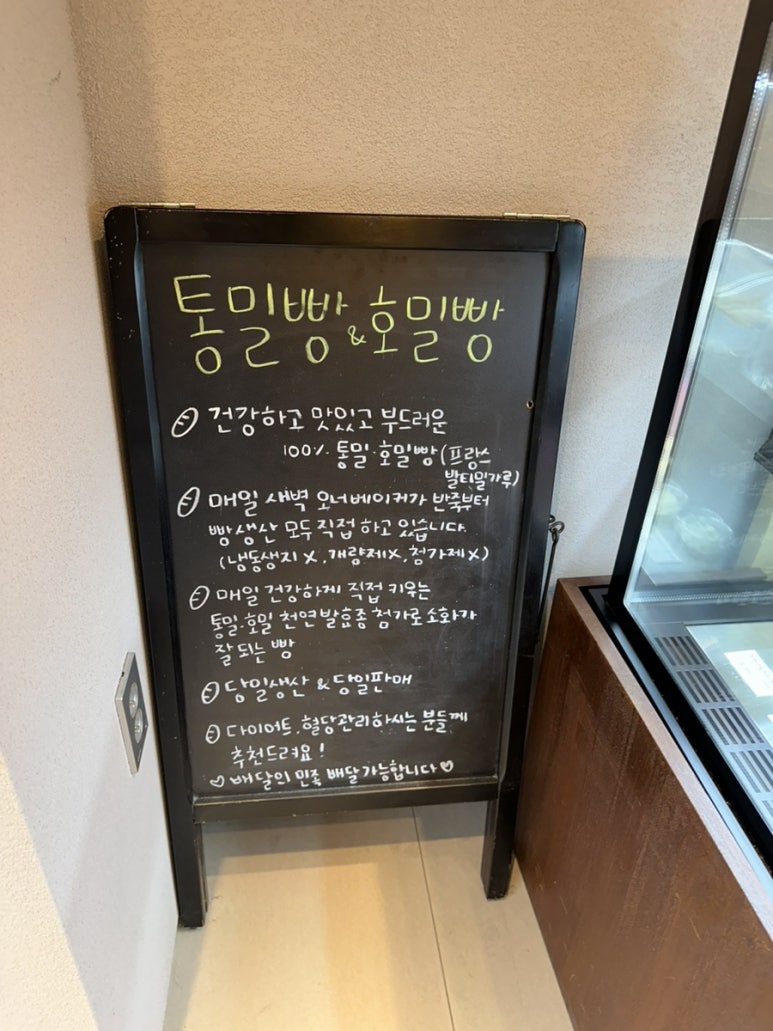 통밀빵 & 호밀빵
건강하고 맛있고 부드러운
100% 통밀·호밀빵 (프랑스
발티밀가루)
매일 새벽 오너베이커가 반죽부터
빵 생산 모두 직접 하고 있습니다.
(냉동생지 X, 개량제X, 첨가제X)
매일 건강하게 직접 키우는
통밀·호밀 천연발효종 첨가로 소화가
잘 되는 빵
당일생산 & 당일판매
다이어트, 혈당관리하시는 분들께
추천드려요!
♡ 배달의 민족 배달가능합니다 ♡